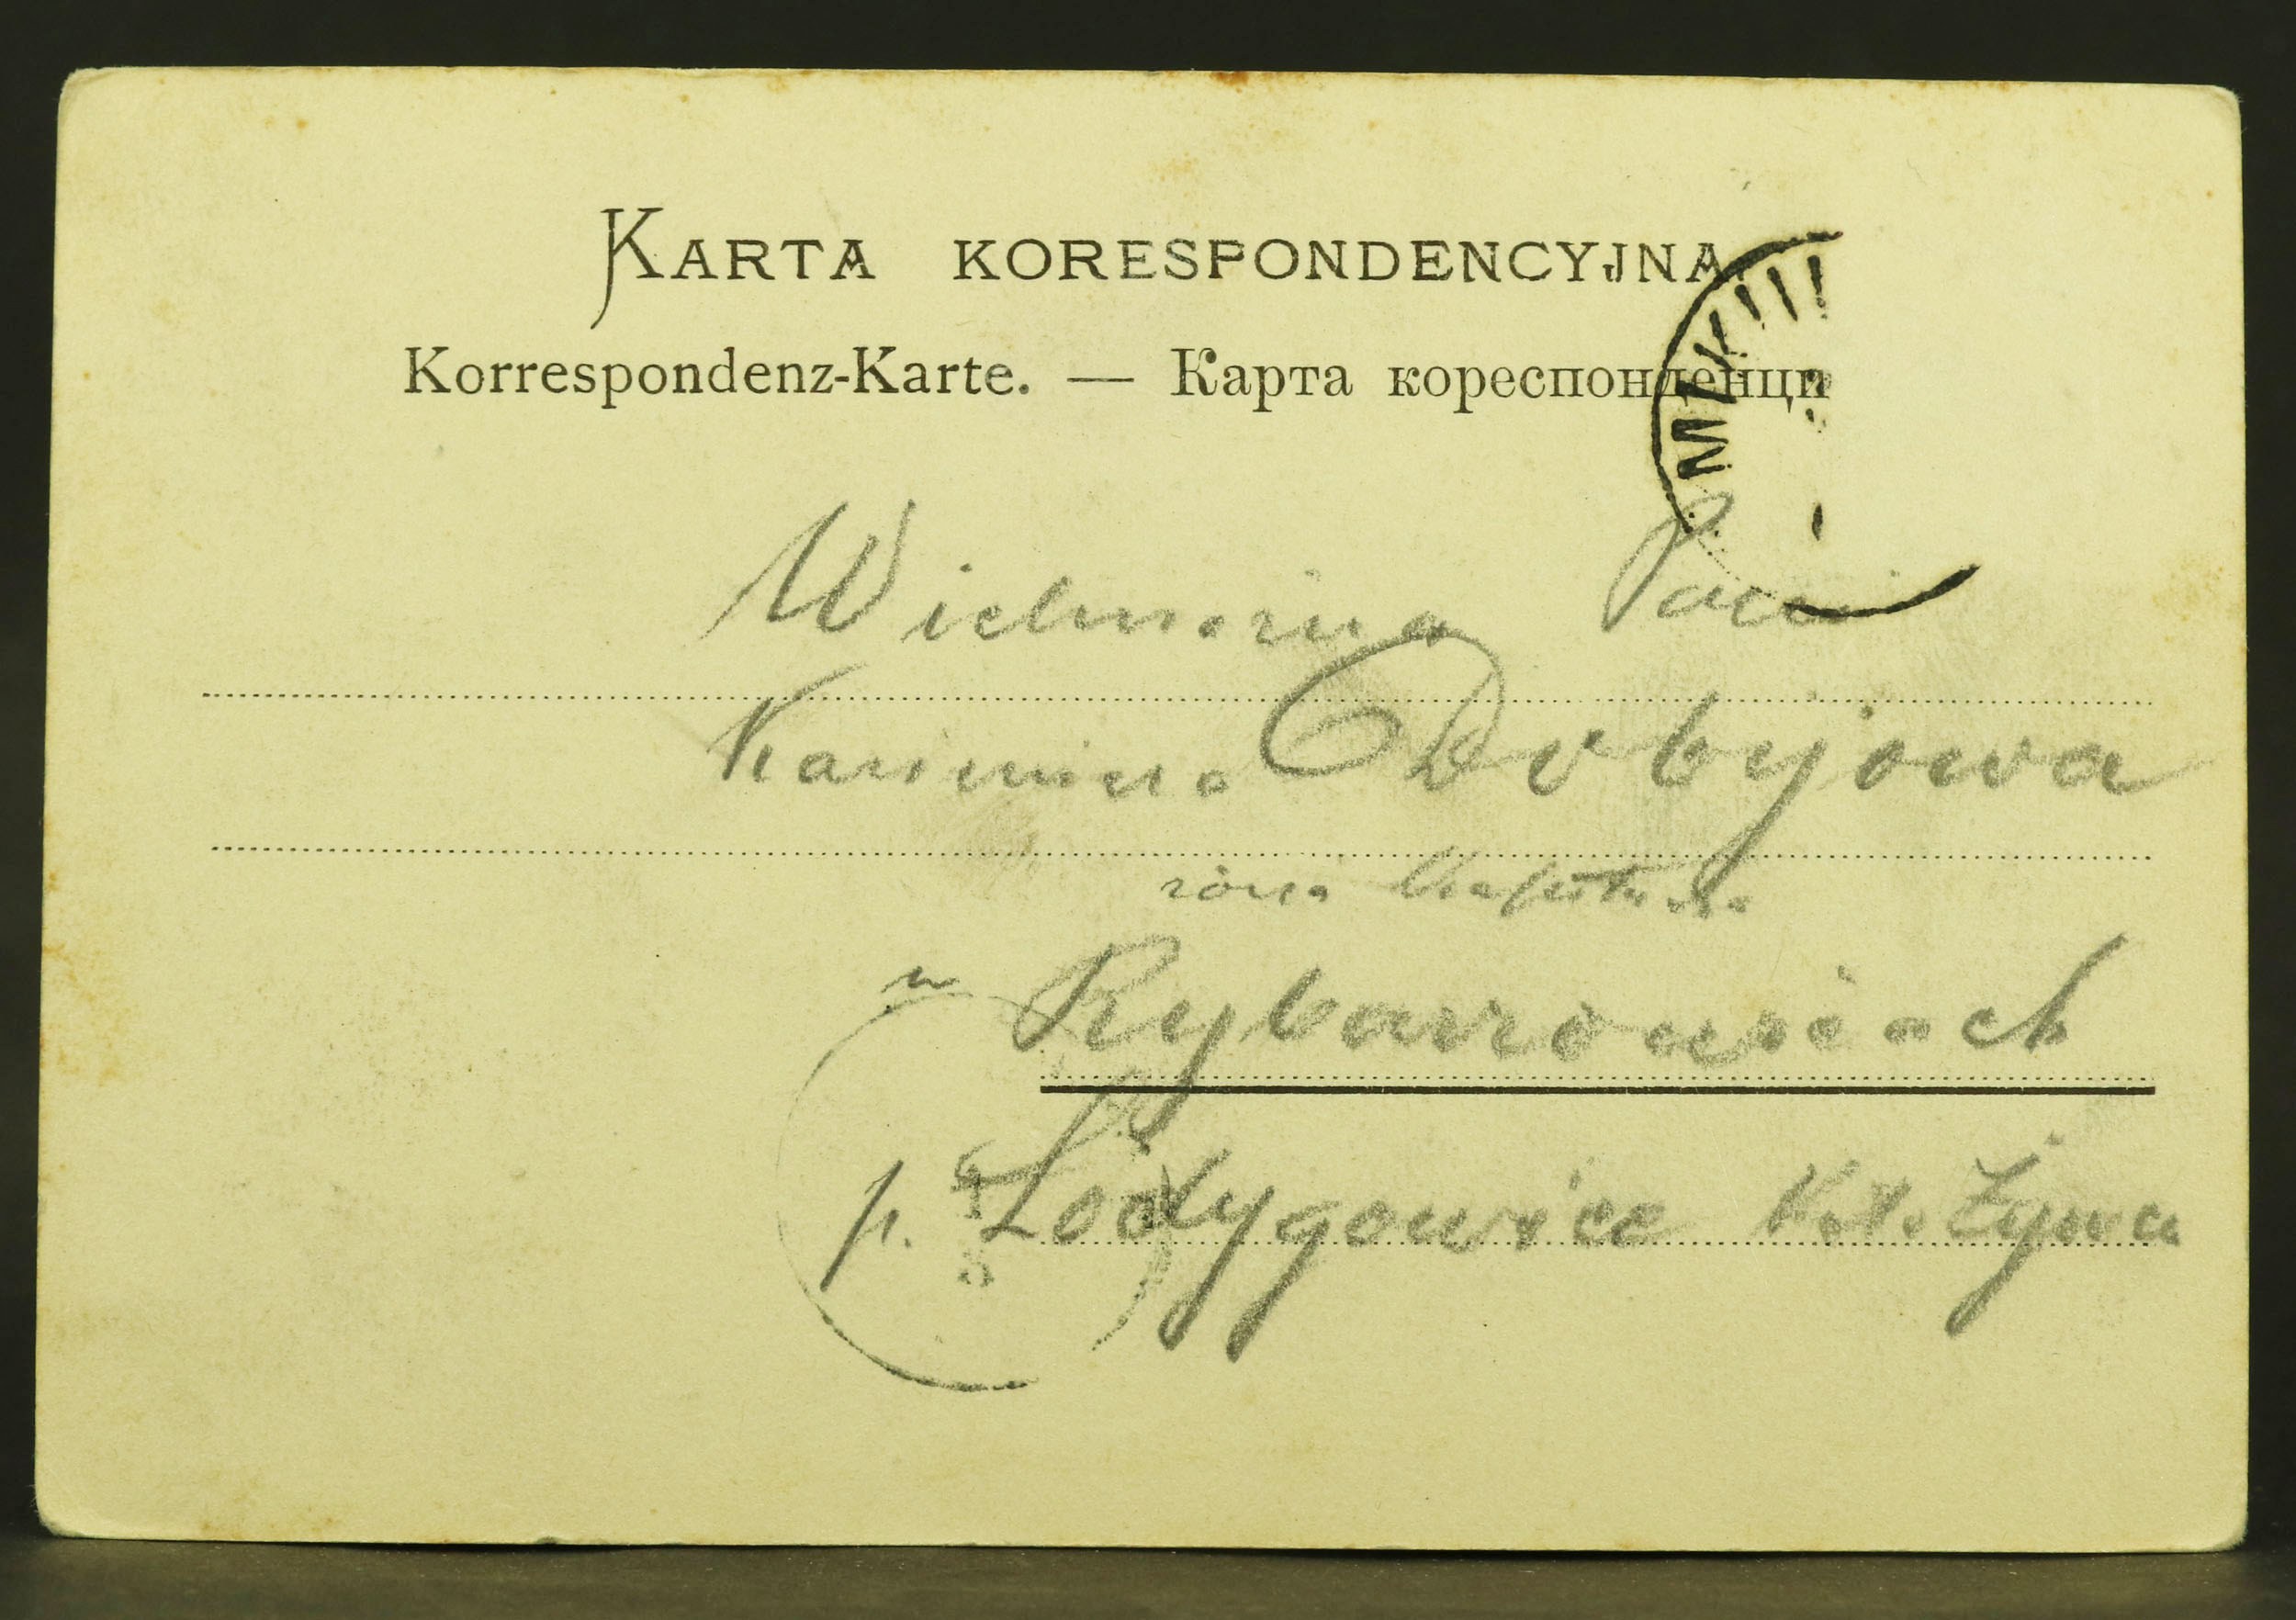 KARTA KORESPONDENCYJNA.
Korrespondenz-Karte. — Карта кореспонденци
Wielmożna Pani
Kazimiera Dobijowa
żona
w Rybarzowicach
p. Łodygowice K. Żywca